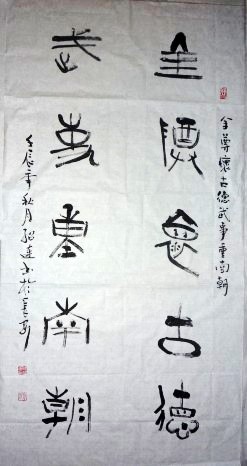 全尊怀古德
武事重南朝
全尊懷古德武事重南朝
壬辰年秋月